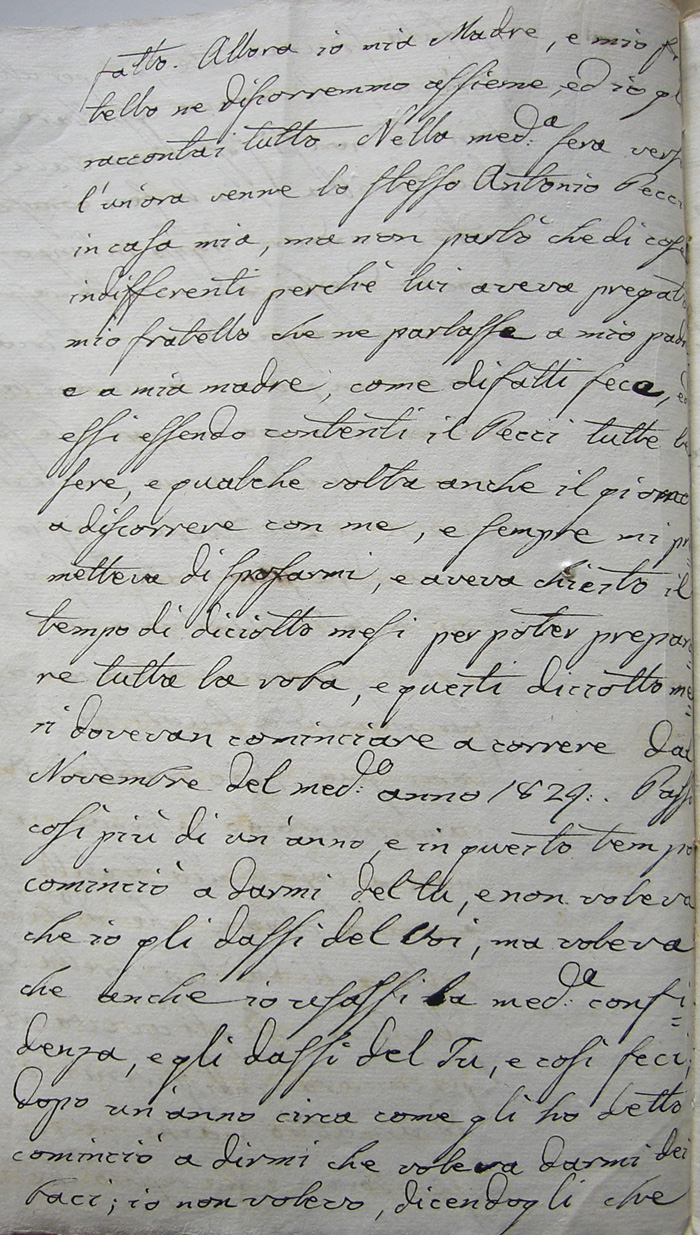 fatto. Allora io mia Madre, e mio fr
tello ne discorremmo assieme, ed io gl
raccontai tutto. Nella med:a sera vers
l'un'ora venne lo stesso Antonio Pecci
in casa mia, ma non parlò che di cose
indifferenti perchè lui aveva pregato
mio fratello che ne parlasse a mio padr
e a mia madre, come difatti fece, ed
essi essendo contenti il Pecci tutte le
sere, e qualche volta anche il giorno
a discorrere con me, e sempre mi pr
metteva di sposarmi, e aveva chiesto il
tempo di diciotto mesi per poter prepara
re tutta la roba, e questi diciotto me=
si dovevan cominciare a correre dal
Novembre del med:o anno 1829:. Passò
così più di un'anno, e in questo tempo
cominciò a darmi del tu, e non voleva
che io gli dassi del Voi, ma voleva
che anche io usassi la med:a confi=
denza, e gli dassi del Tu, e così feci;
dopo un'anno circa come gli ho detto
cominciò a dirmi che voleva darmi dei
baci; io non volevo, dicendogli che